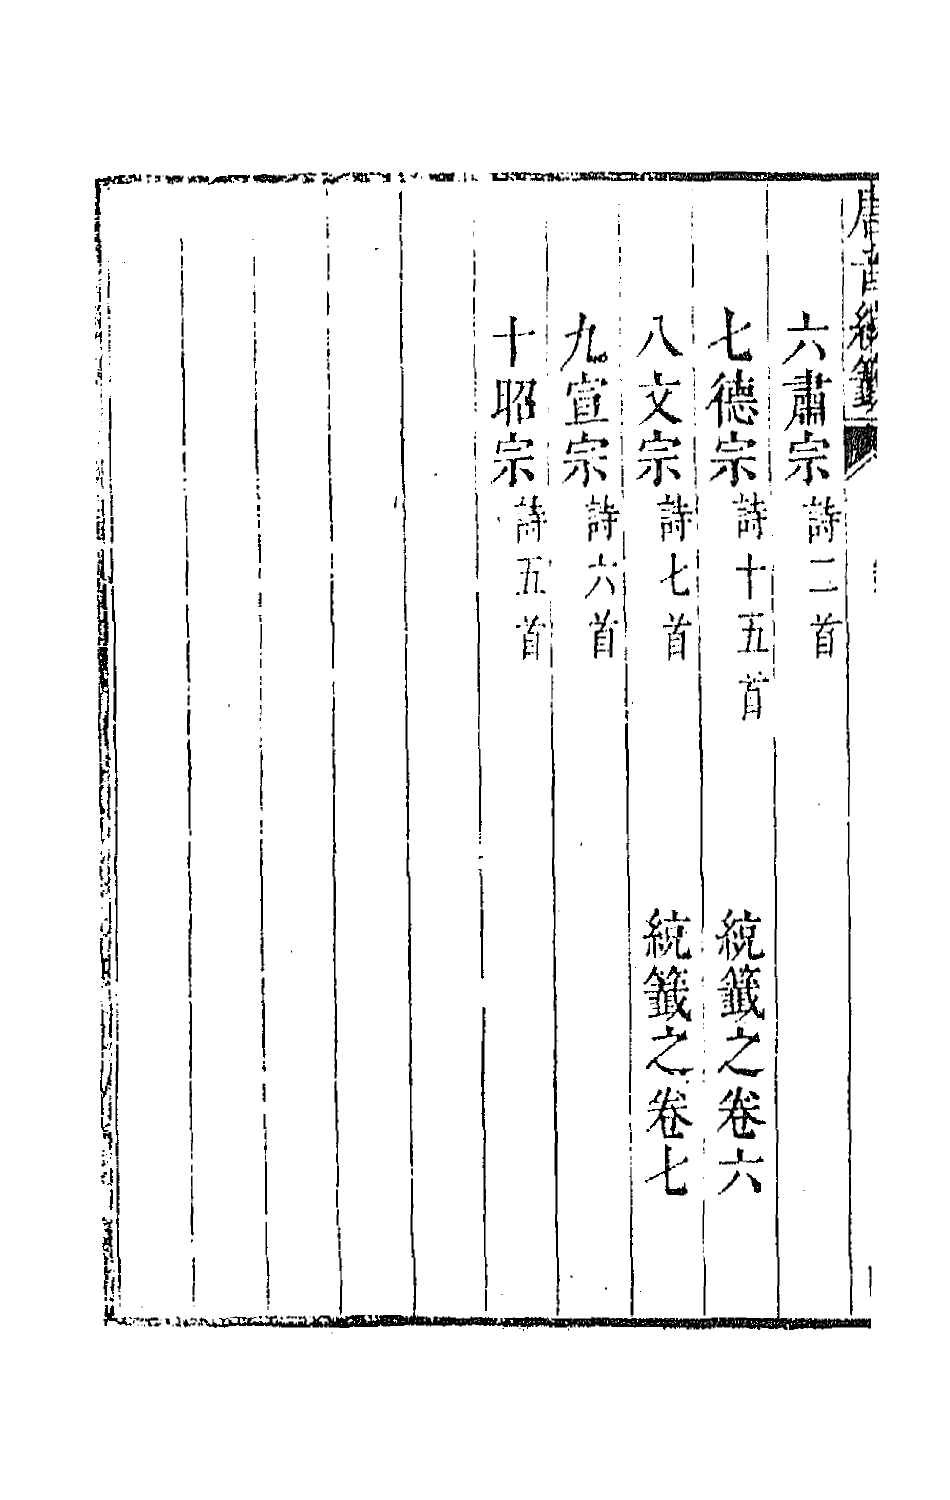 唐音統籤
六肅宗詩二首
七德宗詩十五首 統籤之卷六
八文宗詩七首 統籤之卷七
九宣宗詩六首
十昭宗詩五首